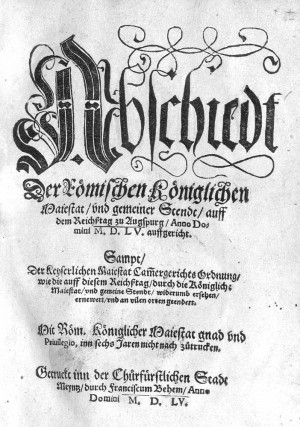 Abschiedt
Der Römischen Königlichen
Maiestat / vnd gemeiner Stendt / auff
dem Reichßtag zu Augspurg / Anno Do-
mini M. D. LV. auffgericht.
Sampt /
Der Keyserlichen Maiestat Cam̄ergerichts Ordnung /
wie die auff diesem Reichßtag / durch die Königliche
Maiestat / vnd gemeine Stende / widerumb ersehen /
ernewert / vnd an vilen orten geendert.
Mit Röm. Königlicher Maiestat gnad vnd
Priuilegio, inn sechs Jaren nicht nach zůtrucken.
Getruckt inn der Chürfürstlichen Stadt
Meyntz / durch Franciscum Behem / Anno
Domini M. D. LV.